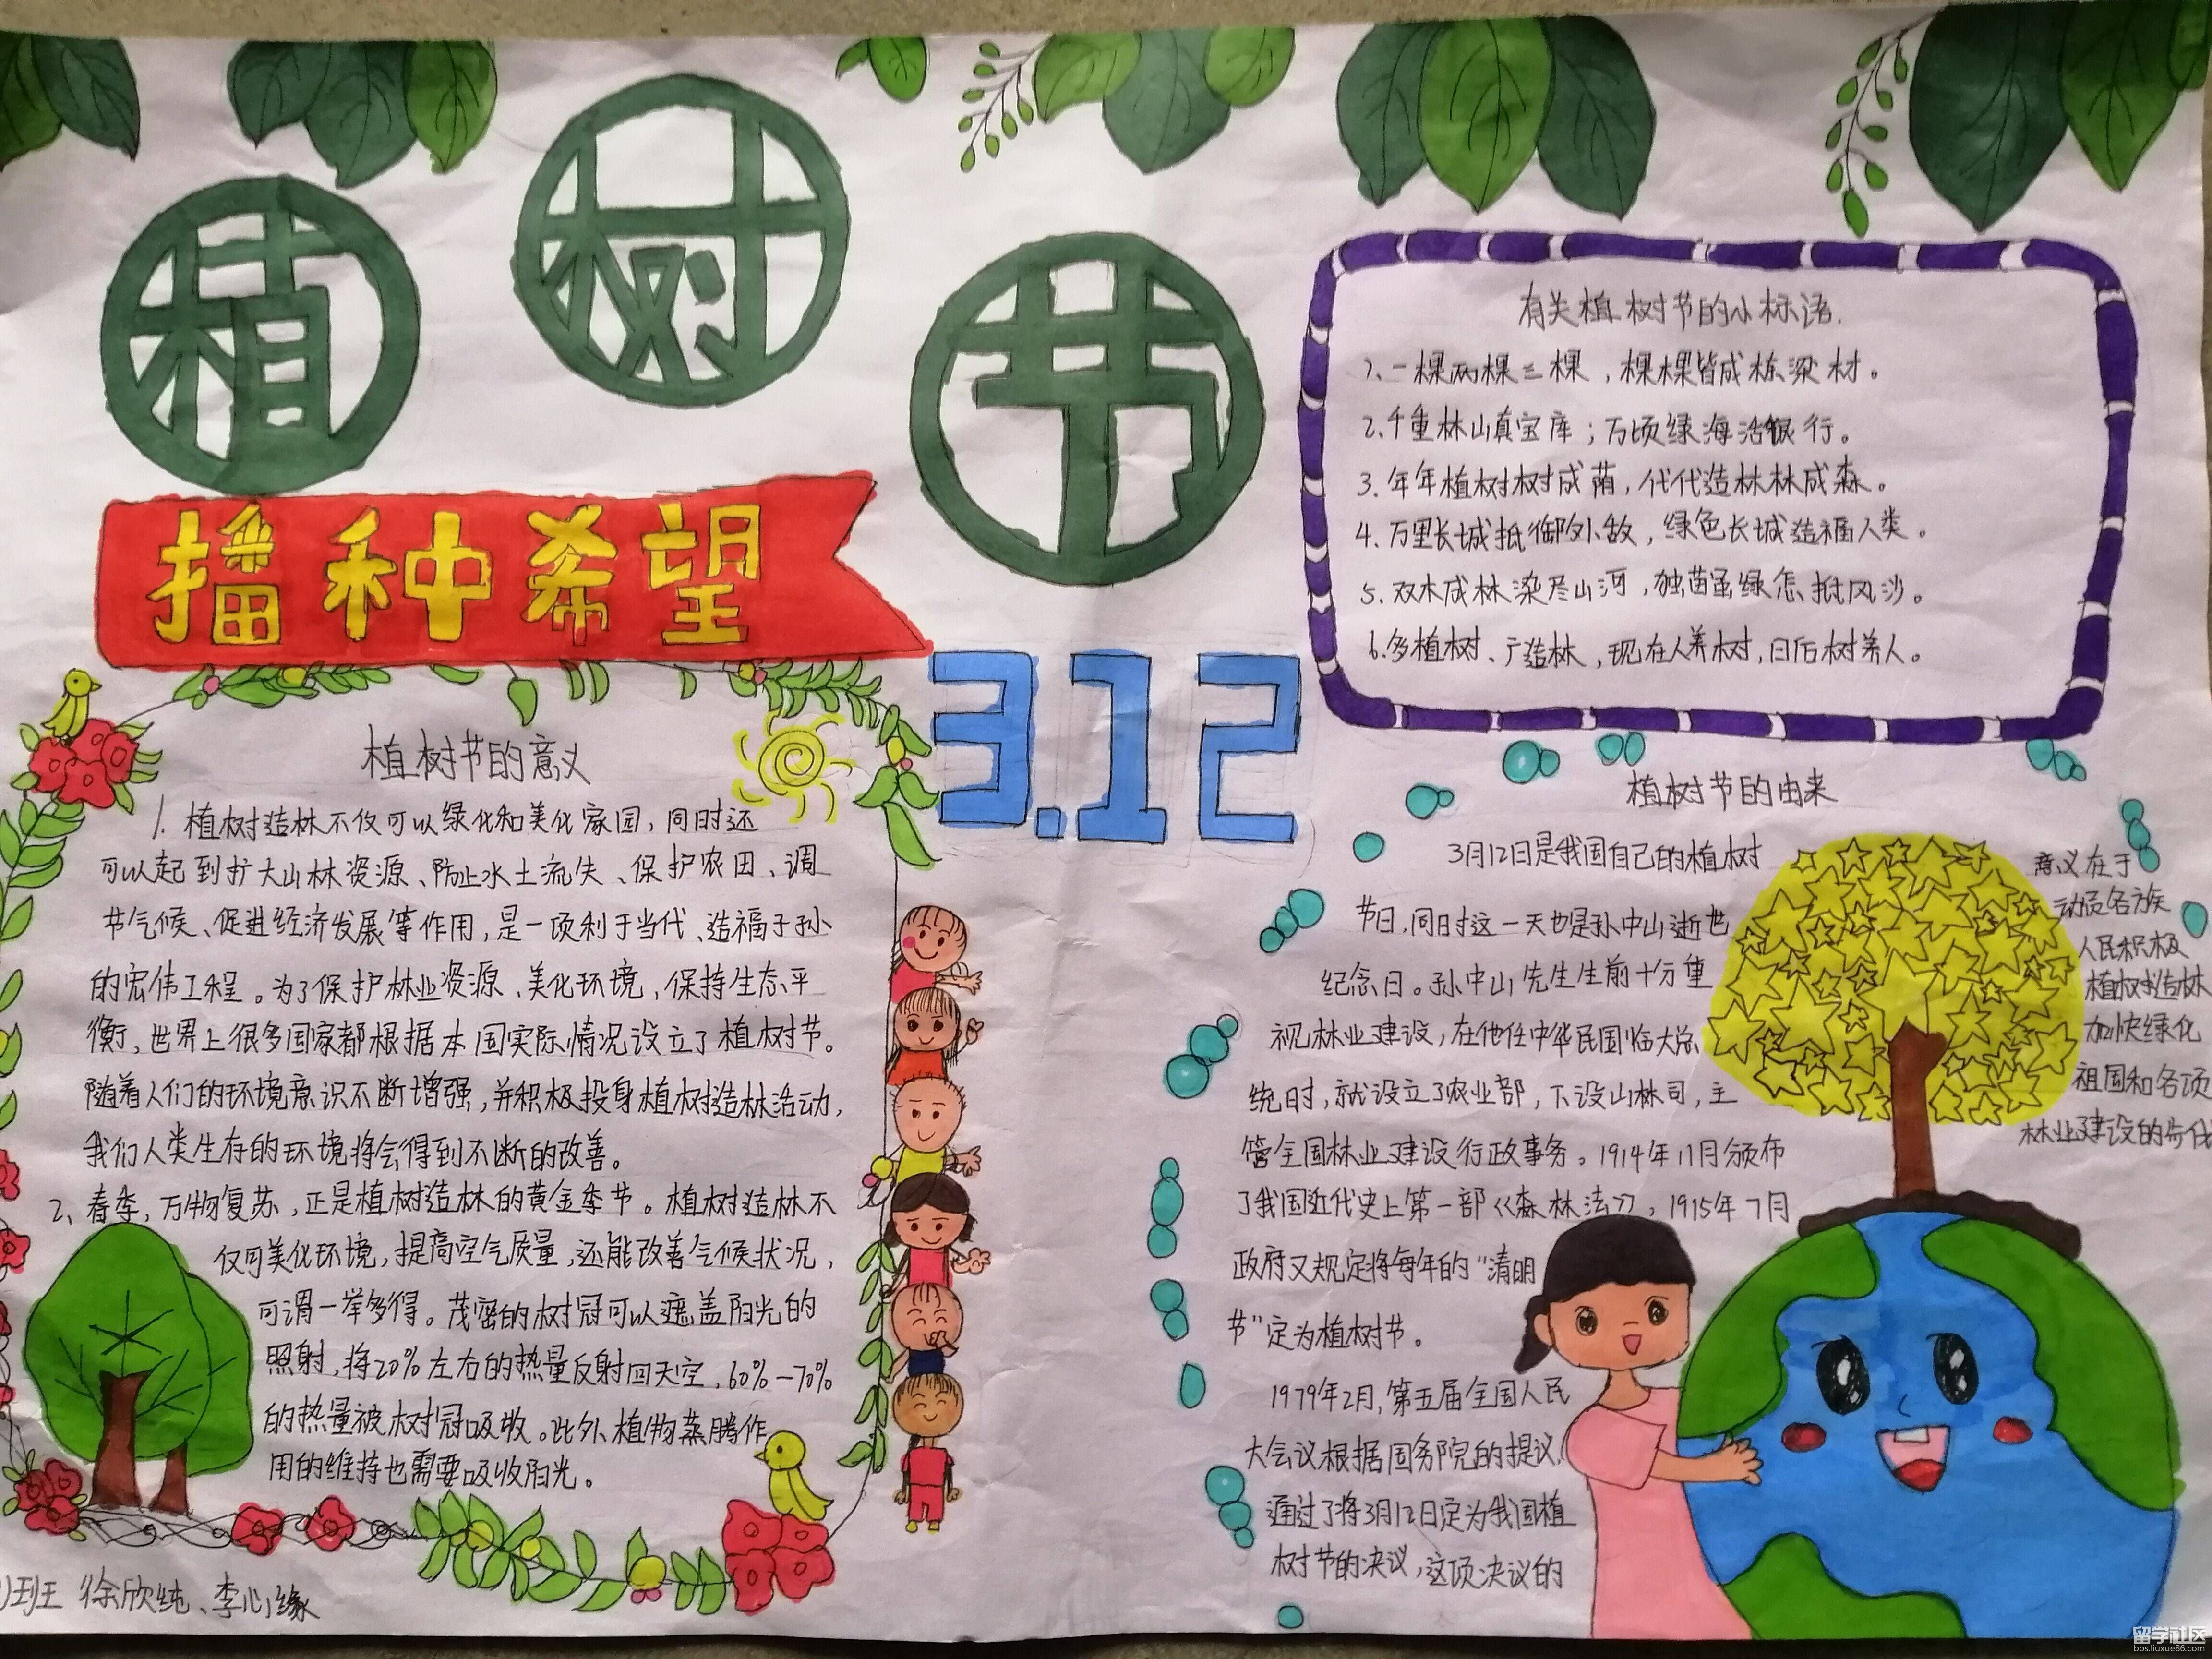 植树节
播种希望
3.12
植树节的意义
1. 植树造林不仅可以绿化和美化家园,同时还
可以起到扩大山林资源、防止水土流失、保护农田、调
节气候、促进经济发展等作用,是一项利于当代、造福子孙
的宏伟工程。为了保护林业资源、美化环境、保持生态平
衡,世界上很多国家都根据本国实际情况设立了植树节。
随着人们的环境意识不断增强,并积极投身植树造林活动,
我们人类生存的环境将会得到不断的改善。
2、春季,万物复苏,正是植树造林的黄金季节。植树造林不
仅可美化环境,提高空气质量,还能改善气候状况,
可谓一举多得。茂密的树冠可以遮盖阳光的
照射,将20%左右的热量反射回天空,60%—70%
的热量被树冠吸收。此外,植物蒸腾作
用的维持也需要吸收阳光。
班 徐欣纯、李心缘
有关植树节的小标语.
1、一棵两棵三棵,棵棵皆成栋梁材。
2、千重林山真宝库;万顷绿海活银行。
3、年年植树树成荫,代代造林林成森。
4、万里长城抵御外敌,绿色长城造福人类。
5、双木成林染尽山河,独苗虽绿怎抵风沙。
6、多植树、广造林,现在人养树,日后树养人。
植树节的由来
3月12日是我国自己的植树
节日,同时这一天也是孙中山逝世
纪念日。孙中山先生生前十分重
视林业建设,在他任中华民国临大总
统时,就设立了农业部,下设山林司,主
管全国林业建设行政事务。1914年11月颁布
了我国近代史上第一部《森林法》,1915年7月
政府又规定将每年的“清明
节”定为植树节。
1979年2月,第五届全国人民
大会议根据国务院的提议,
通过了将3月12日定为我国植
树节的决议,这项决议的
意义在于
动员各族
人民积极
植树造林
加快绿化
祖国和各项
林业建设的步伐
留学社区
bbs.liuxue86.com